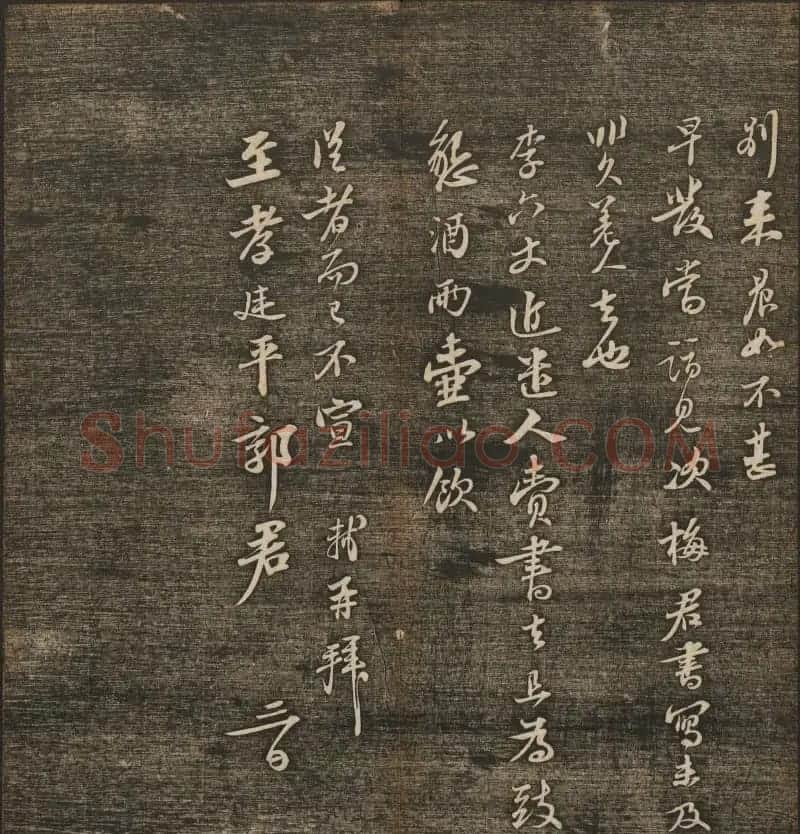 別來晨如不甚
早發當詣見次梅君書寫未及
非久差人去也
李六丈近遣人賫書去且為致
懇酒兩壺以飲
從者而已不宣 軾再拜
至孝廷平郭君
Shufaziliao.COM